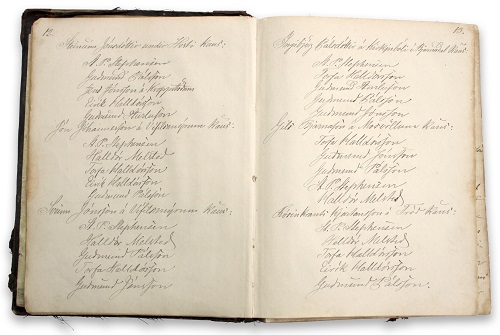 12.
Steinunn Jónsdóttir under Horti Kaus:
A. P. Stephensen
Gudmund Pálsson
Jón Jónsson á
Eirik Halldórsson
Gudmund
Jón Jóhannesson á Vífilsmýrum Kaus:
A. P. Stephensen
Halldór Melsted
Torfa Halldórsson
Eirik Halldórsson
Gudmund Pálsson
Jónsson á Vífilsmýrum Kaus:
A. P. Stephensen
Halldór Melsted
Gudmund Pálsson
Torfa Halldórsson
Gudmund Jónsson
13.
Ingibjörg Pálsdóttir á Kirkjubóli í Kaus:
A. P. Stephensen
Torfa Halldórsson
Gudmund
Gudmund Pálsson
Gudmund Jónsson
Gils Bjarnason á Mosvöllum Kaus:
Torfa Halldórsson
Gudmund Jónsson
Gudmund Pálsson
A. P. Stephensen
Halldór Melsted
Kjartansson á Kaus:
A. P. Stephensen
Halldór Melsted
Torfa Halldórsson
Eirik Halldórsson
Gudmund Pálsson.